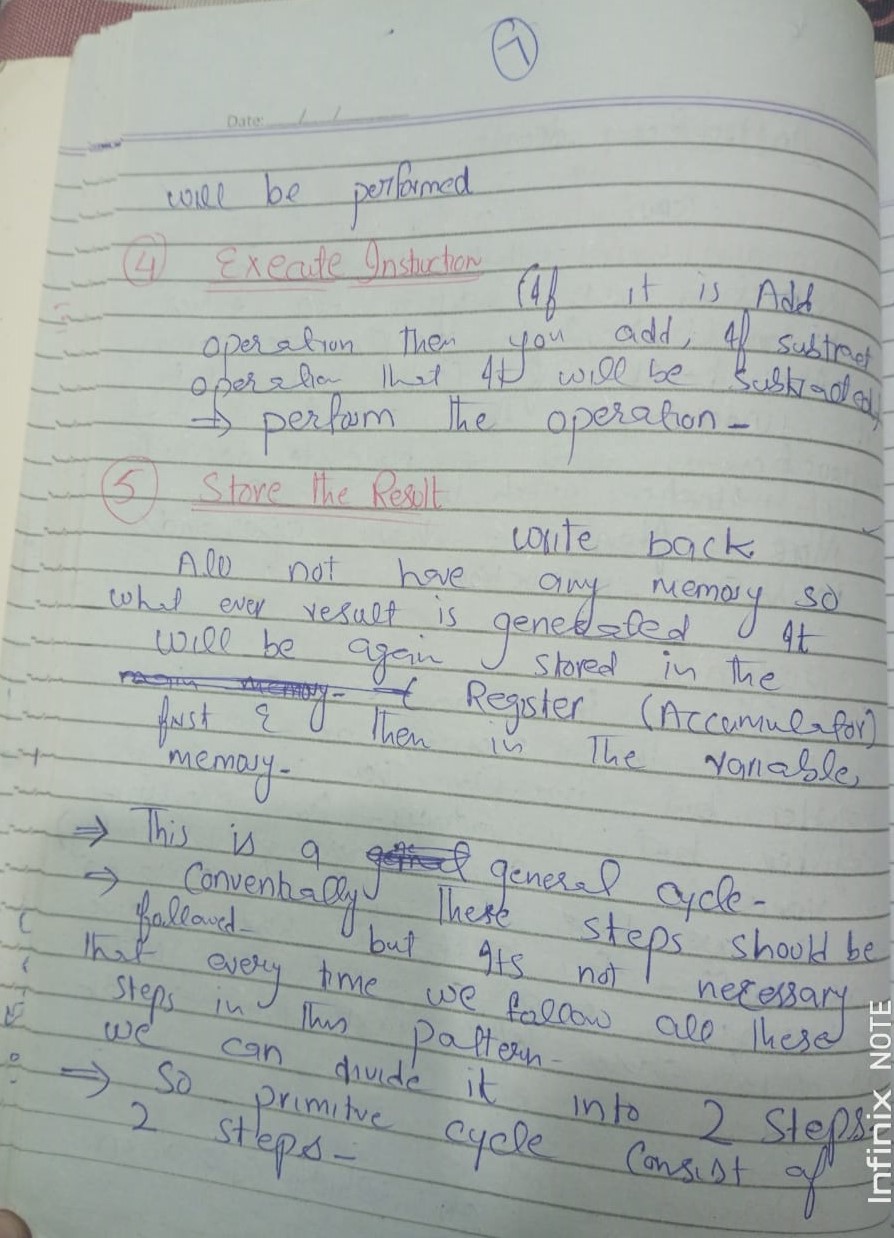 7
Date: / /
will be performed
4 Execute Instuction
(If it is Add
operation then you add, If subtract
operation that It will be subtracted)
→ perform the operation -
5 Store the Result
write back
ALU not have any memory so
what ever result is generated It
will be again stored in the
Register (Accumulator)
first & Then in The variable,
memory-
⇒ This is a general cycle-
→ Conventially These steps should be
followed- but Its not necessary
That every time we follow all These
steps in This pattern-
we can divide it into 2 steps-
⇒ So primitve cycle Consist of
2 steps-
Infinix NOTE